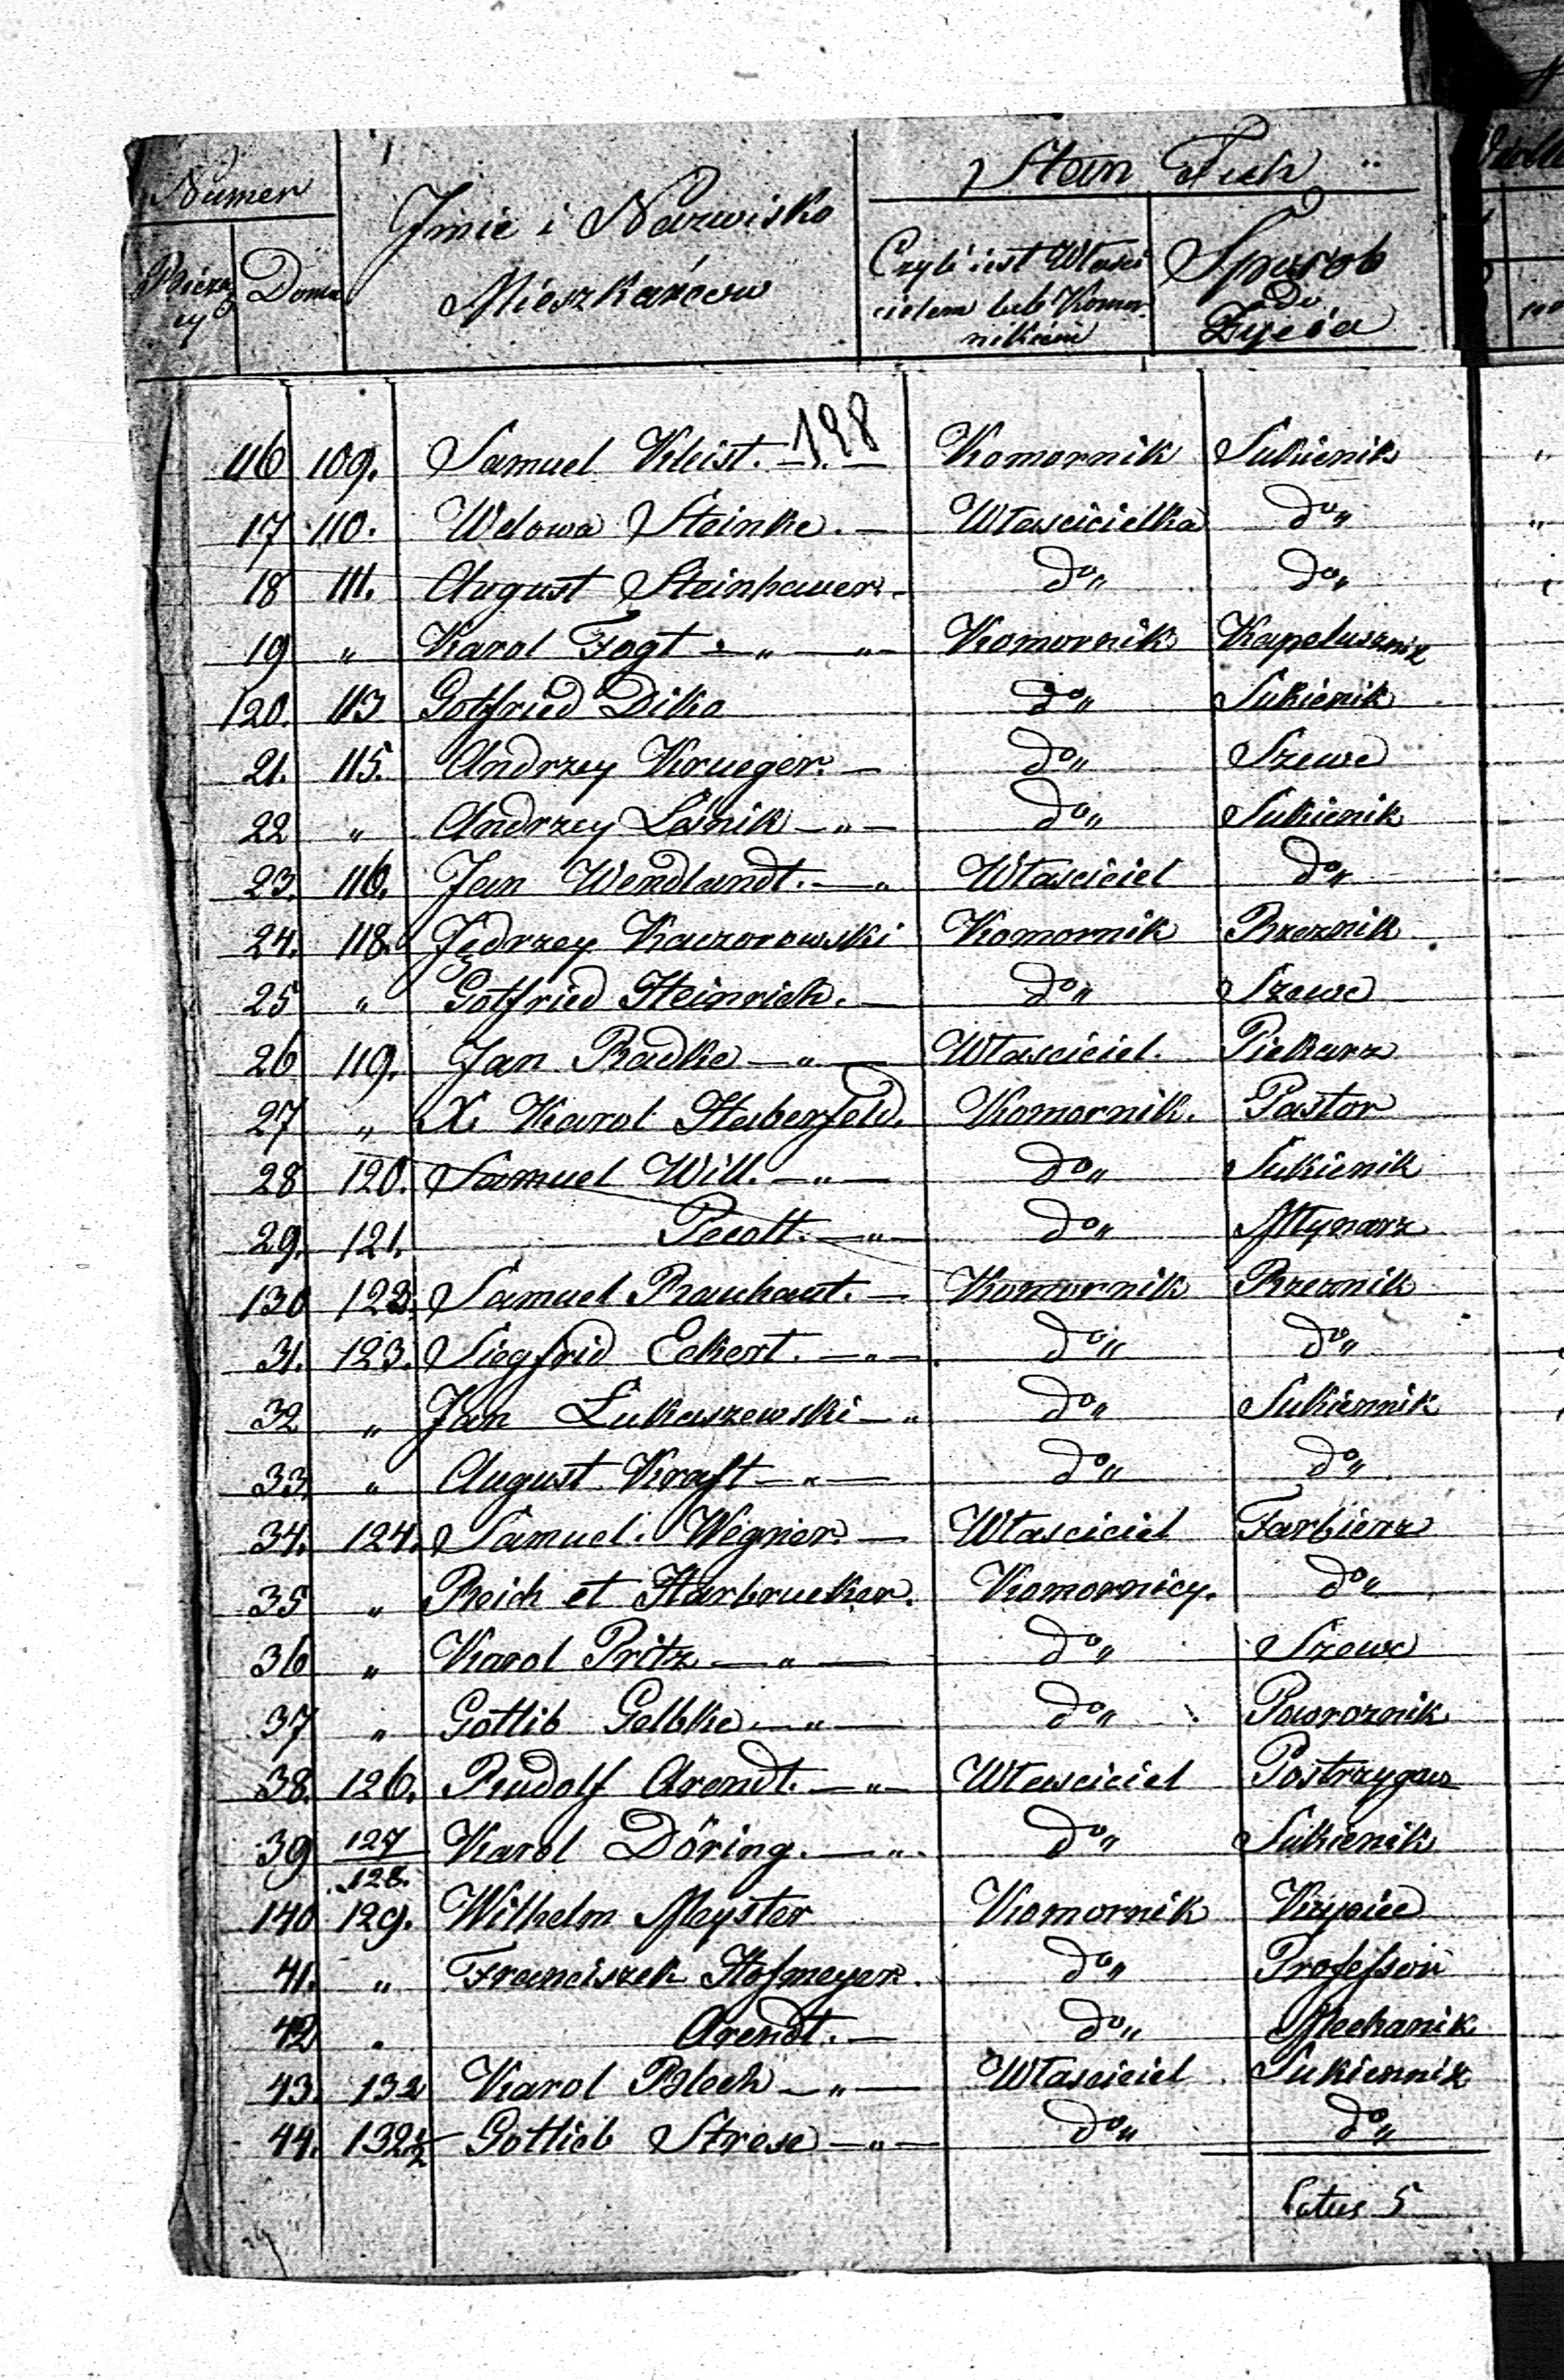 Numer
Imie i Nazwisko Mieszkańców
Stan Tych
Bieżący
Domu
Czyli iest Właścicielem lub Komornikiem
Sposob do Życia
198
116 109. Samuel Kleist. — Komornik Sukienik
17 110. Wdowa Steinke. — Właścicielka do „
18 111. August Steinhauer. do „ do „
19 „ Karol Fogt — „ — Komornik Kapelusznik
120. 113 Gotfried Dilka do „ Sukienik
21. 115. Andrzey Krueger. — do „ Szewc
22 „ Andrzey Lesnik — „ — do „ Sukienik
23. 116. Jan Wendlandt. — „ Właściciel do „
24. 118. Jędrzey Kaczorowski Komornik Rzeznik
25 „ Gotfried Heinrich. — do „ Szewc
26 119. Jan Radke — „ — Właściciel. Piekarz
27 „ X. Karol Haberfeld. Komornik. Pastor
28 120. Samuel Will. — „ — do „ Sukienik
29. 121. — „ — do „ Młynarz
130 123. Samuel Rauhaut. — Komornik Rzeznik
31. 123. Siegfrid Eckert. — „ — do „ do „
32 „ Jan Lukaszewski — „ do „ Sukiennik
33. „ August Kraft — „ — do „ do „
34. 124. Samuel. Wegner. — Właściciel Farbierz
35 „ Reich et Harbrucker. Komornicy. do „
36 „ Karol Pritz — „ — do „ Szewc
37 „ Gottlib Gelbke — „ — do „ Powroznik
38. 126. Rudolf Arendt. — „ — Właściciel Postrzygacz
39 127/128. Karol Döring. — „ . do „ Sukienik
140 129. Wilhelm Meyster Komornik Kupiec
41. „ Franciszek Hofmeyer. do „ Professor
42 „ Arendt. — do „ Mechanik
43. 132 Karol Blech — „ — Właściciel Sukiennik
44. 132½ Gottlieb Strese — „ — do „ do „
Latus 5